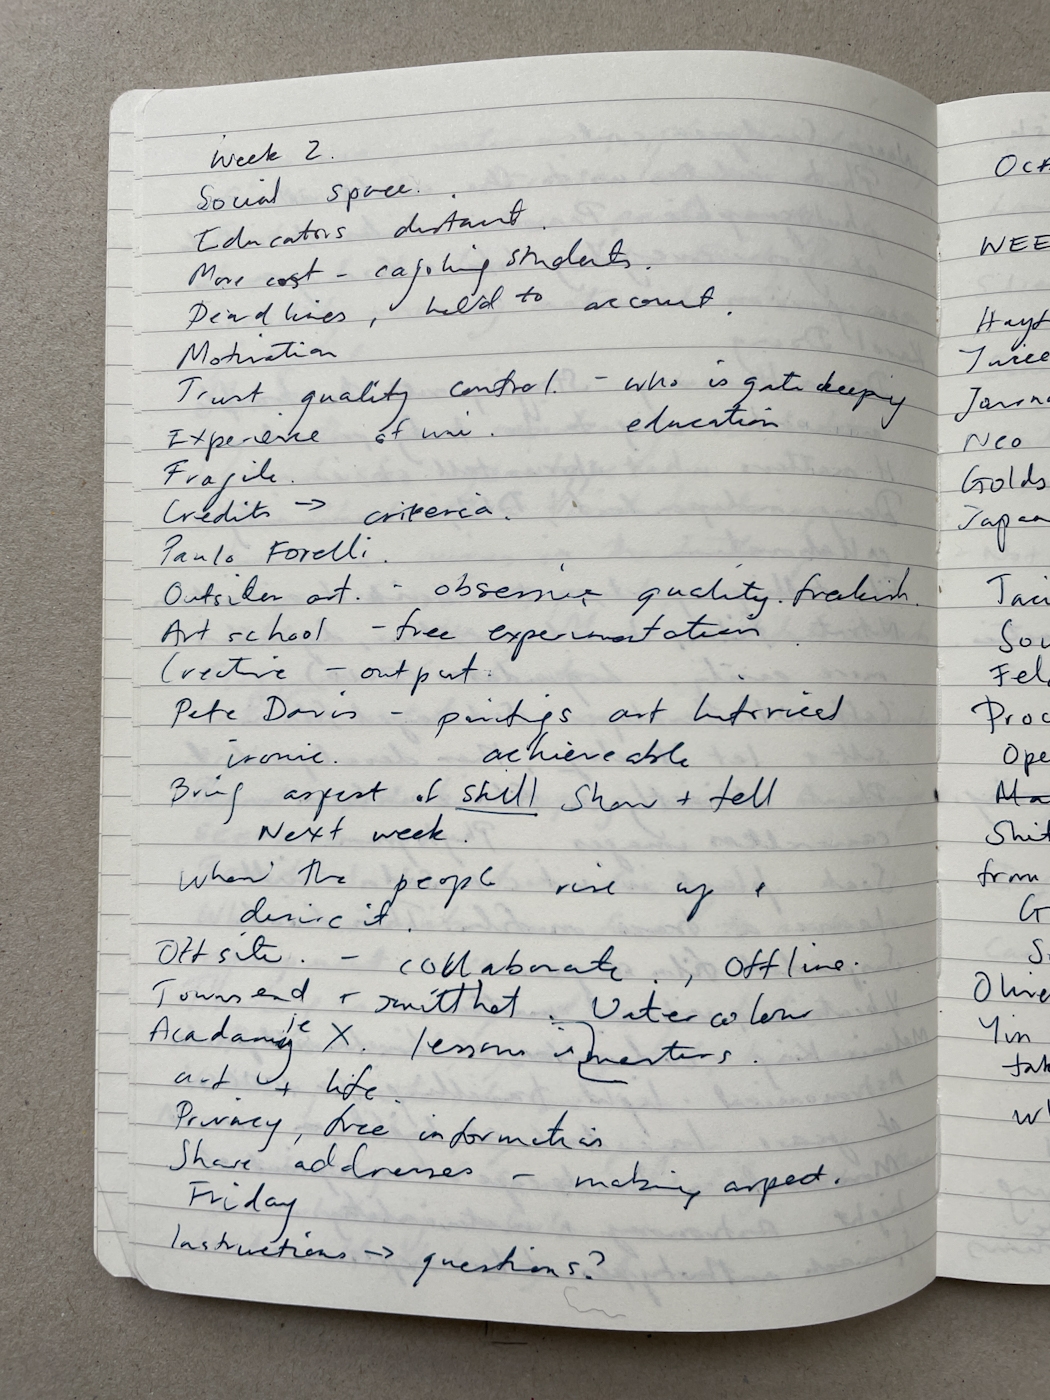 Week 2.
Social space.
Educators distant.
More cost - cajoling students.
Deadlines, held to account.
Motivation
Trust quality control. - who is gatekeeping
Experience of uni. education
Fragile.
Credits → criteria.
Paulo Forelli.
Outsider art. - obsessive quality. freakish.
Art school - free experimentation
Creative - output.
Pete Davis - paintings art historical
ironic. achieveable
Bring aspect of skill Show + tell
Next week.
When the people rise up &
desire it.
Offsite. - collaborate, Offline.
Townsend + . Watercolour
X. lessons in masters.
art + life.
Privacy, free information
Share addresses - making aspect.
Friday
Instructions → questions?
Oct
WEE
Hayt
Journa
Neo
Golds
Japan
Sou
Feld
Proc
Ope
Ma
Shit
from
G
S
Olive
Yin
tak
wh